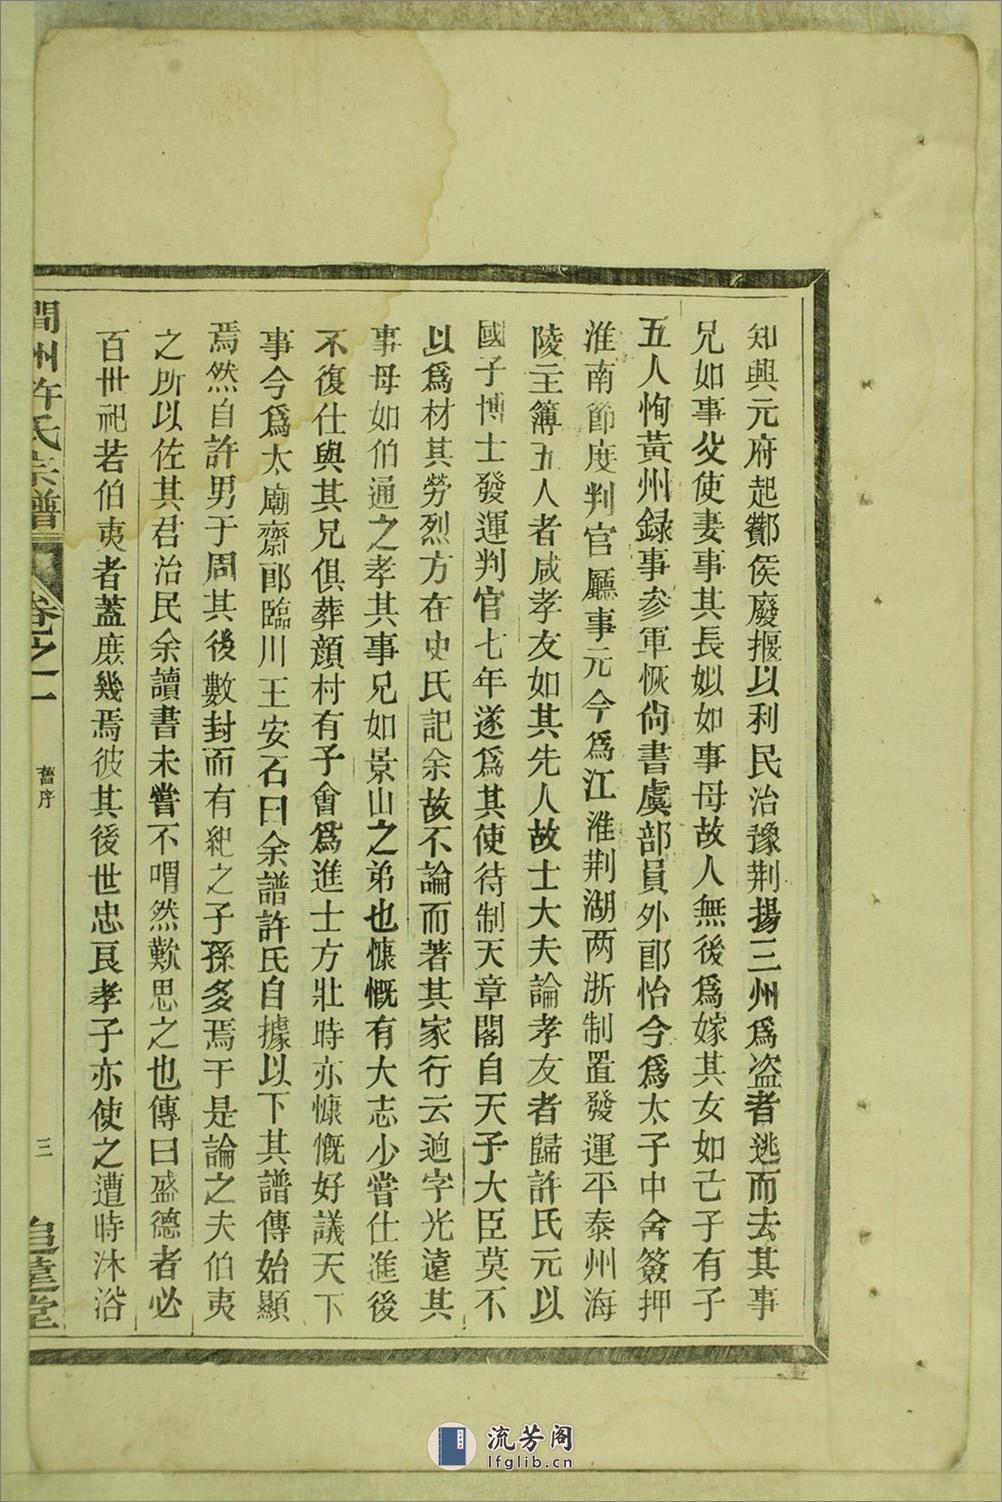 知興元府起酇侯廢堰以利民治豫荆揚三州爲盗者逃而去其事
兄如事父使妻事其長姒如事母故人無後爲嫁其女如己子有子
五人恂黃州録事參軍恢尙書虞部員外郎怡今爲太子中舍簽押
淮南節度判官廳事元今爲江淮荆湖两浙制置發運平泰州海
陵主簿五人者咸孝友如其先人故士大夫論孝友者歸許氏元以
國子博士發運判官七年遂爲其使待制天章閣自天子大臣莫不
以爲材其勞烈方在史氏記余故不論而著其家行云迥字光遠其
事母如伯通之孝其事兄如景山之弟也慷慨有大志少嘗仕進後
不復仕與其兄俱葬顔村有子會爲進士方壯時亦慷慨好議天下
事今爲太廟齋郎臨川王安石曰余譜許氏自據以下其譜傳始顯
焉然自許男于周其後數封而有紀之子孫多焉于是論之夫伯夷
之所以佐其君治民余讀書未嘗不喟然歎思之也傳曰盛德者必
百世祀若伯夷者蓋庶幾焉彼其後世忠良孝子亦使之遭時沐浴
潤州許氏宗譜 卷之一 舊序 三 追遠堂
流芳阁
lfglib.cn